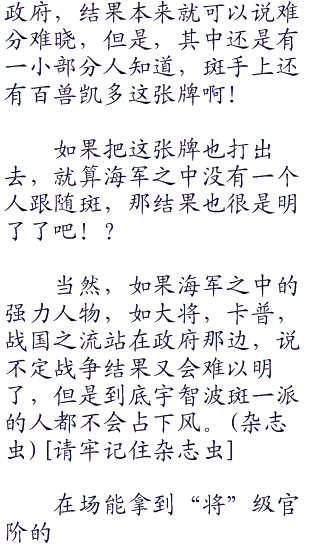 政府，结果本来就可以说难
分难晓，但是，其中还是有
一小部分人知道，斑手上还
有百兽凯多这张牌啊！
如果把这张牌也打出
去，就算海军之中没有一个
人跟随斑，那结果也很是明
了了吧！？
当然，如果海军之中的
强力人物，如大将，卡普，
战国之流站在政府那边，说
不定战争结果又会难以明
了，但是到底宇智波斑一派
的人都不会占下风。(杂志
虫)[请牢记住杂志虫]
在场能拿到“将”级官
阶的